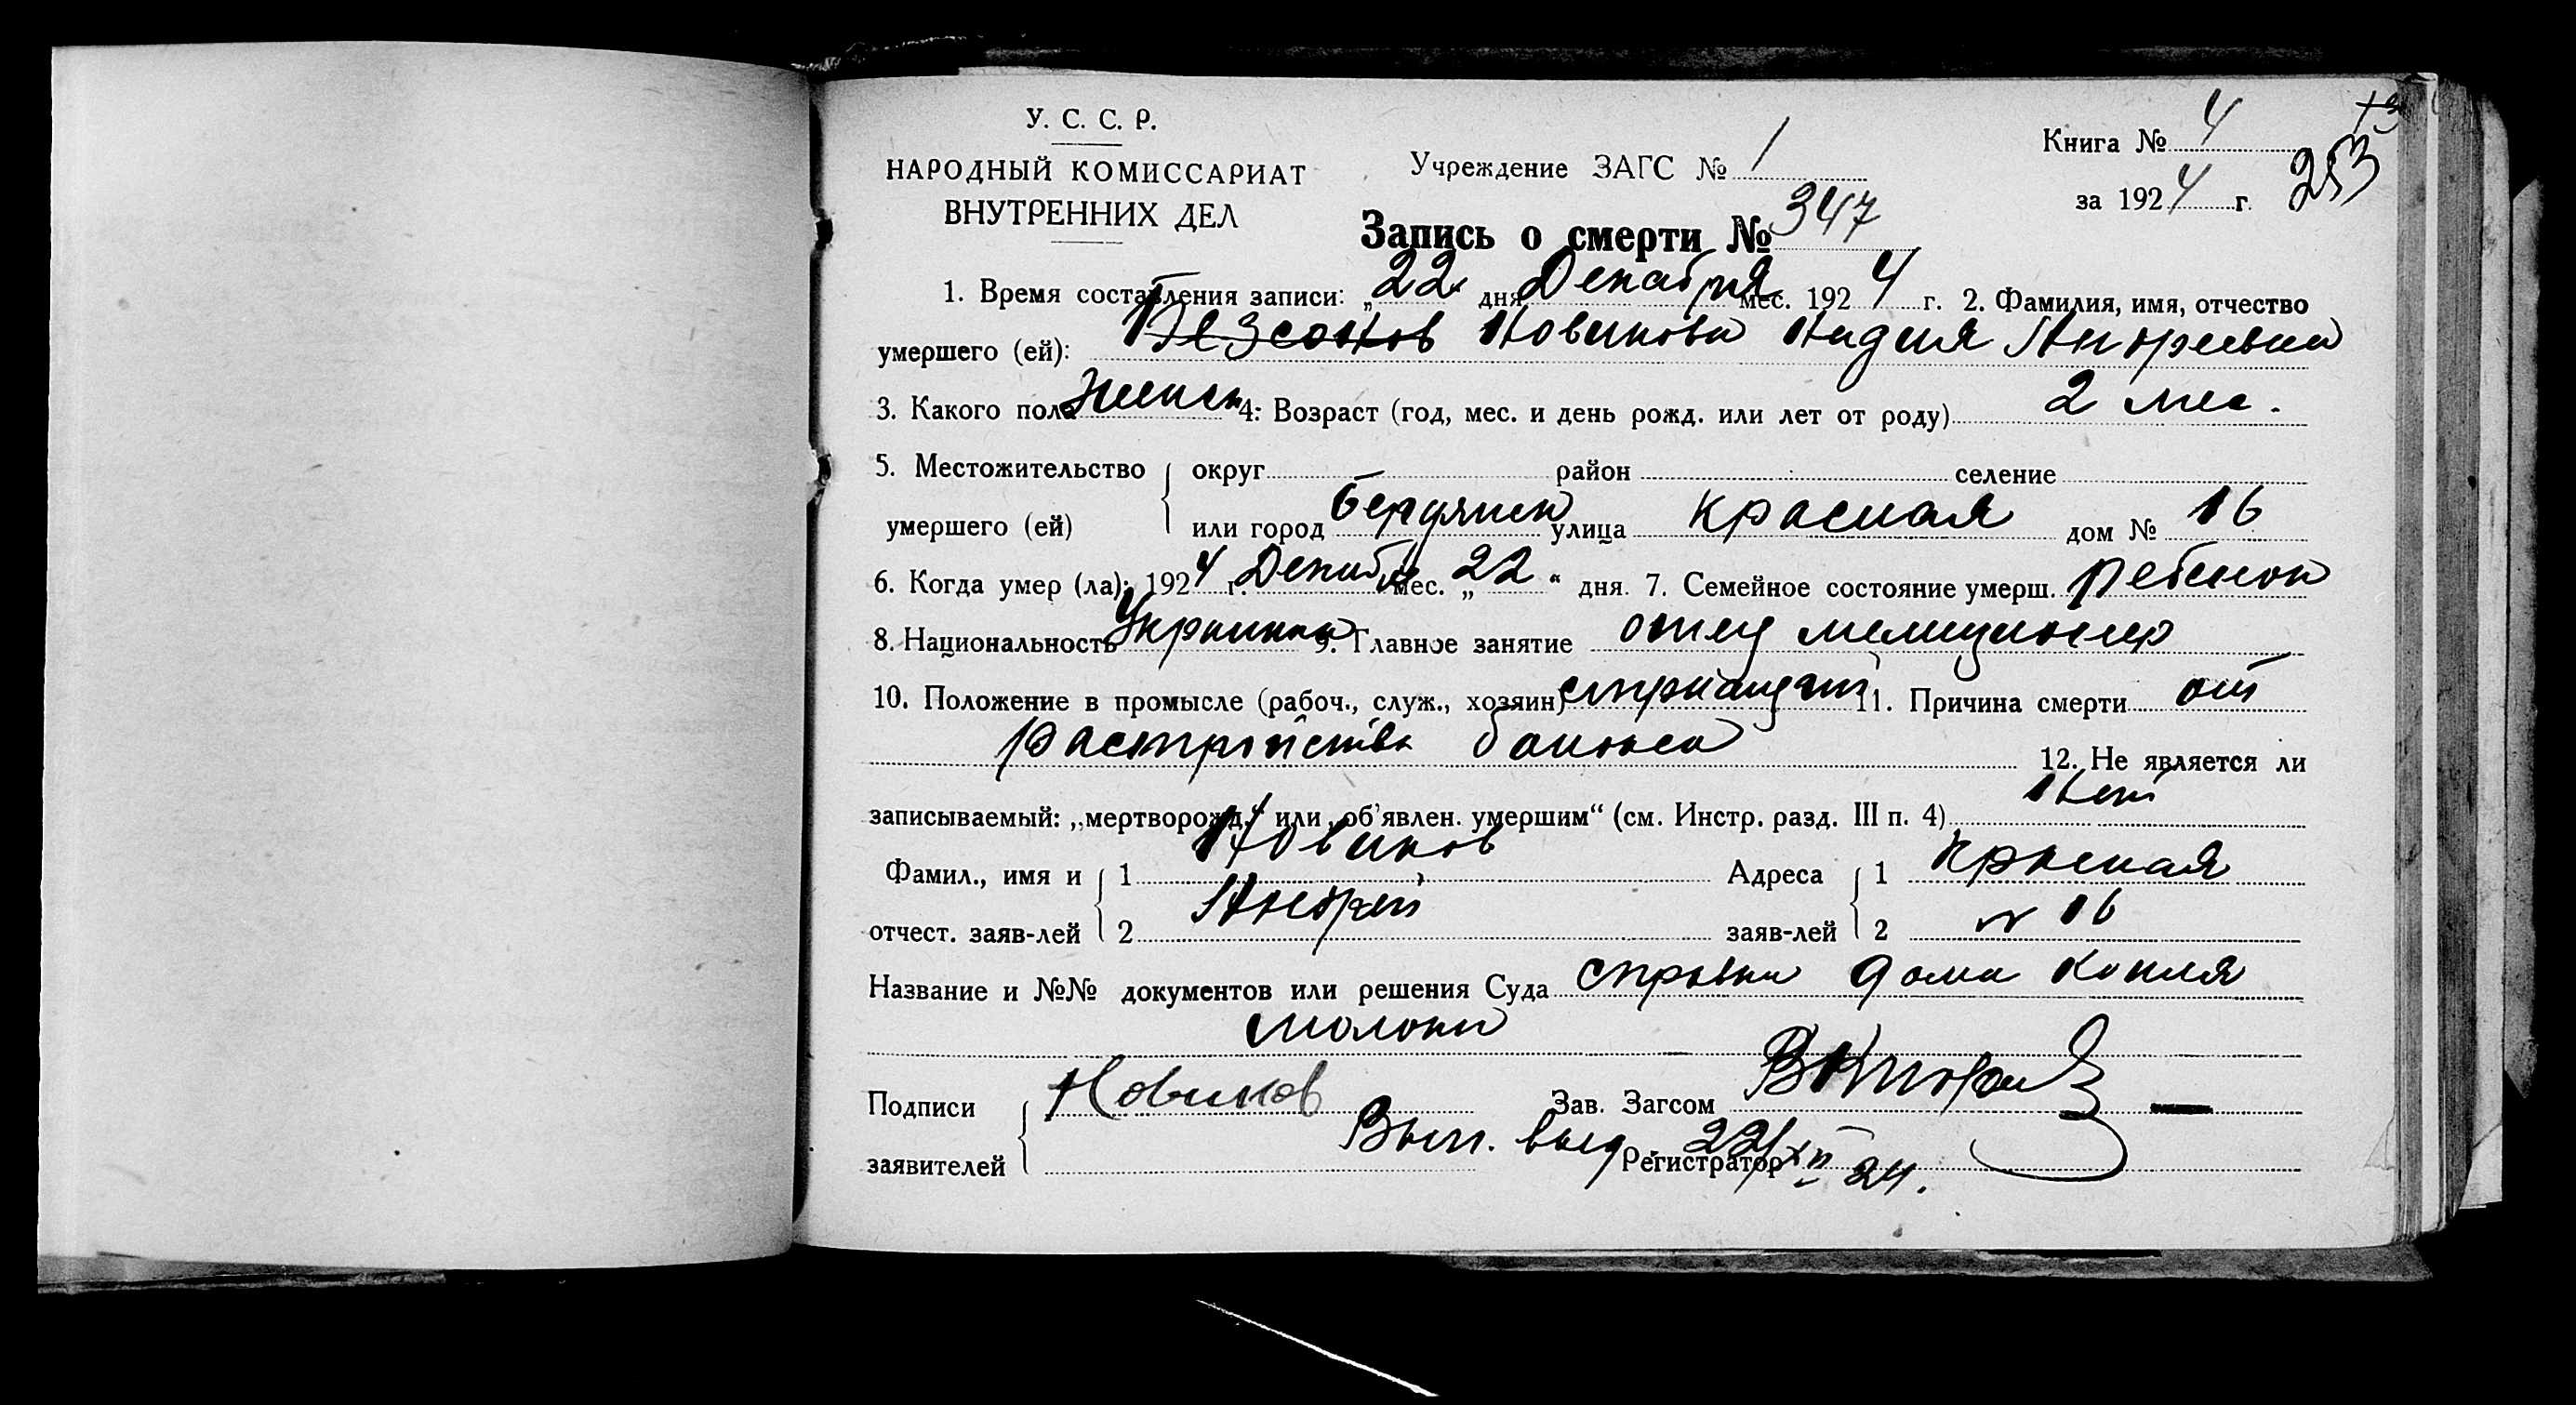 У. С. С. Р.
НАРОДНЫЙ КОМИССАРИАТ
ВНУТРЕННИХ ДЕЛ
Учреждение ЗАГС № 1
Книга № 4
за 1924 г.
253
Запись о смерти № 347
1. Время составления записи: „22 дня Декабря мес. 1924 г. 2. Фамилия, имя, отчество
умершего (ей): Новикова Надия Андреевна
3. Какого пола женск 4. Возраст (год, мес. и день рожд. или лет от роду) 2 мес.
5. Местожительство округ район селение
умершего (ей) или город Бердянск улица Красная дом № 16
6. Когда умер (ла): 1924 г. Декабр мес. „22“ дня. 7. Семейное состояние умерш. ребенок
8. Национальность Украинка 9. Главное занятие отец милиционер
10. Положение в промысле (рабоч., служ., хозяин) 11. Причина смерти от
растройства
12. Не является ли
записываемый: „мертворожд.“ или „об’явлен. умершим“ (см. Инстр. разд. III п. 4) Нет
Фамил., имя и 1 Новиков Адреса 1 Красная
отчест. заяв-лей 2 Андрей заяв-лей 2 № 16
Название и №№ документов или решения Суда справка дома Капля
молока
Подписи Новиков Зав. Загсом
Вып. выд. 22/XII 24.
заявителей Регистратор